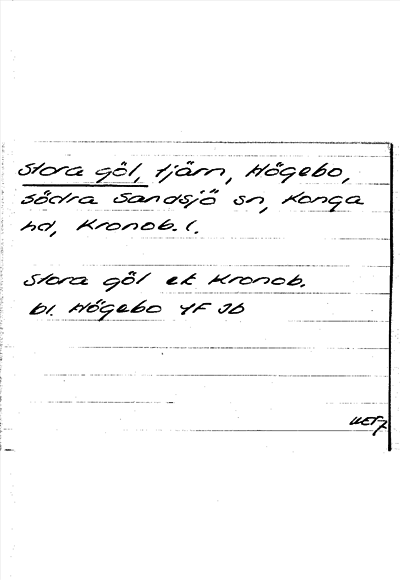 Stora göl, tjärn, Högebo,
Södra Sandsjö sn, Konga
hd, Kronob. l.
Stora göl ek Kronob.
bl. Högebo 4F Jb